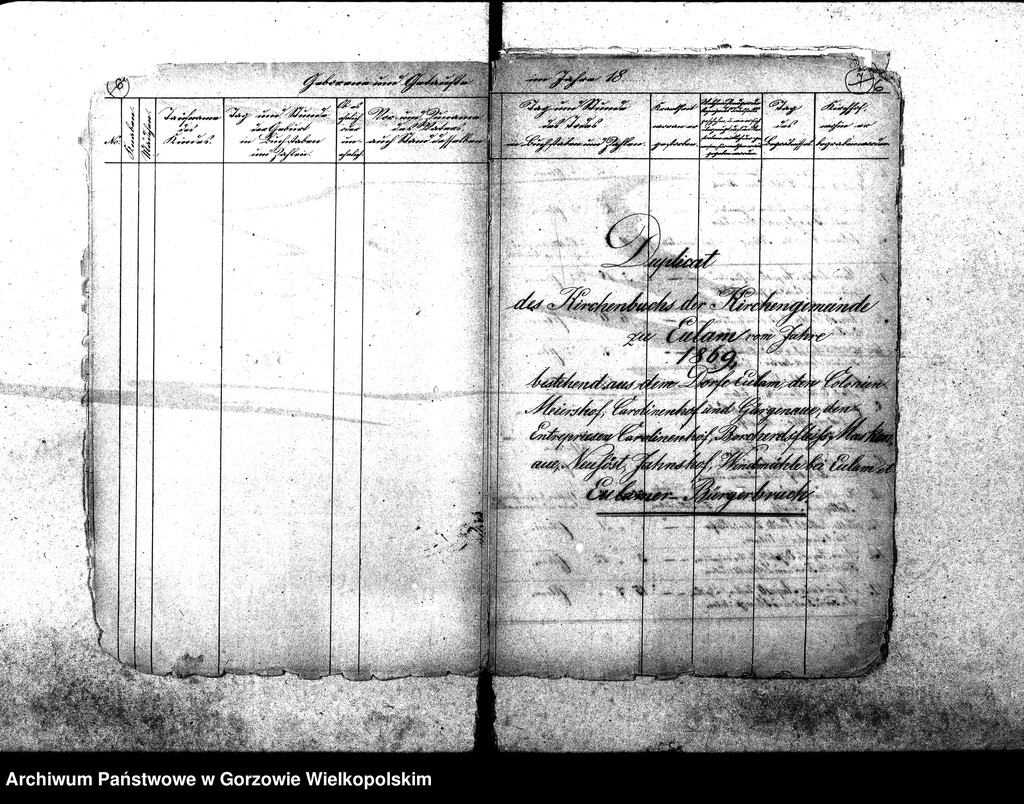 8
Geborene und Getaufte
No.
Knaben.
Mädchen.
Taufname
des
Kindes.
Tag und Stunde
der Geburt
in Buchstaben
und Zahlen.
Ob es
ehelich
oder
un-
ehelich.
Vor- und Zuname
des Vaters
auch Stand desselben
im Jahre 18
7
6
Tag und Stunde
des Todes
in Buchstaben und Zahlen.
Krankheit
woran er
gestorben.
Tag
des
Begräbnisses
Kirchhof,
wohin er
begraben worden
Duplicat
des Kirchenbuchs der Kirchengemeinde
zu Eulam vom Jahre
1869,
bestehend aus dem Dorfe Eulam, den Colonien
Meiershof, Carolinenhof und Gürgenaue, den
Entreprisen Carolinenhof, Borcherdsfleiss, Masken-
aue, Neuföst, Jahnshof, Windmühle bei Eulam et
Eulamer-Bürgerbruch
Archiwum Państwowe w Gorzowie Wielkopolskim